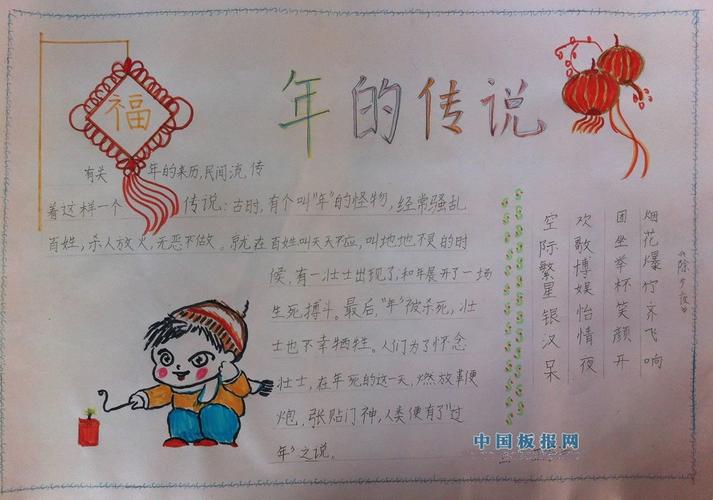 福
年的传说
有关 年的来历,民间流传
着这样一个 传说:古时,有个叫"年"的怪物,经常骚乱
百姓,杀人放火,无恶不做。就在百姓叫天天不应,叫地地不灵的时
候,有一壮士出现了,和年展开了一场
生死搏斗。最后,"年"被杀死,壮
士也不幸牺牲。人们为了怀念
壮士,在年死的这一天,燃放鞭
炮,张贴门神,人类便有了"过
年"之说。
《除夕夜》
烟花爆竹齐飞响
团坐举杯笑颜开
欢歌博娱怡情夜
空际繁星银汉呆
中国板报网